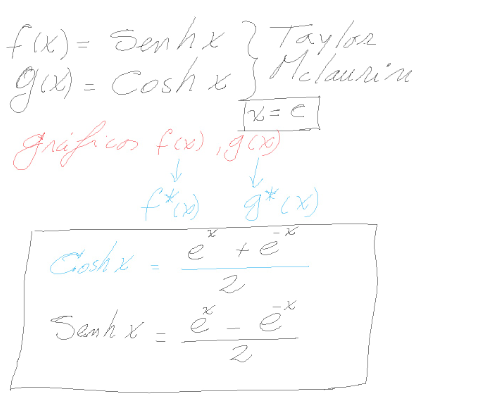 f(x) = Senh x } Taylor
g(x) = Cosh x } Mclaurin
x = e
gráficos f(x), g(x)
f*(x) g*(x)
Cosh x = (e^x + e^-x) / 2
Senh x = (e^x - e^-x) / 2